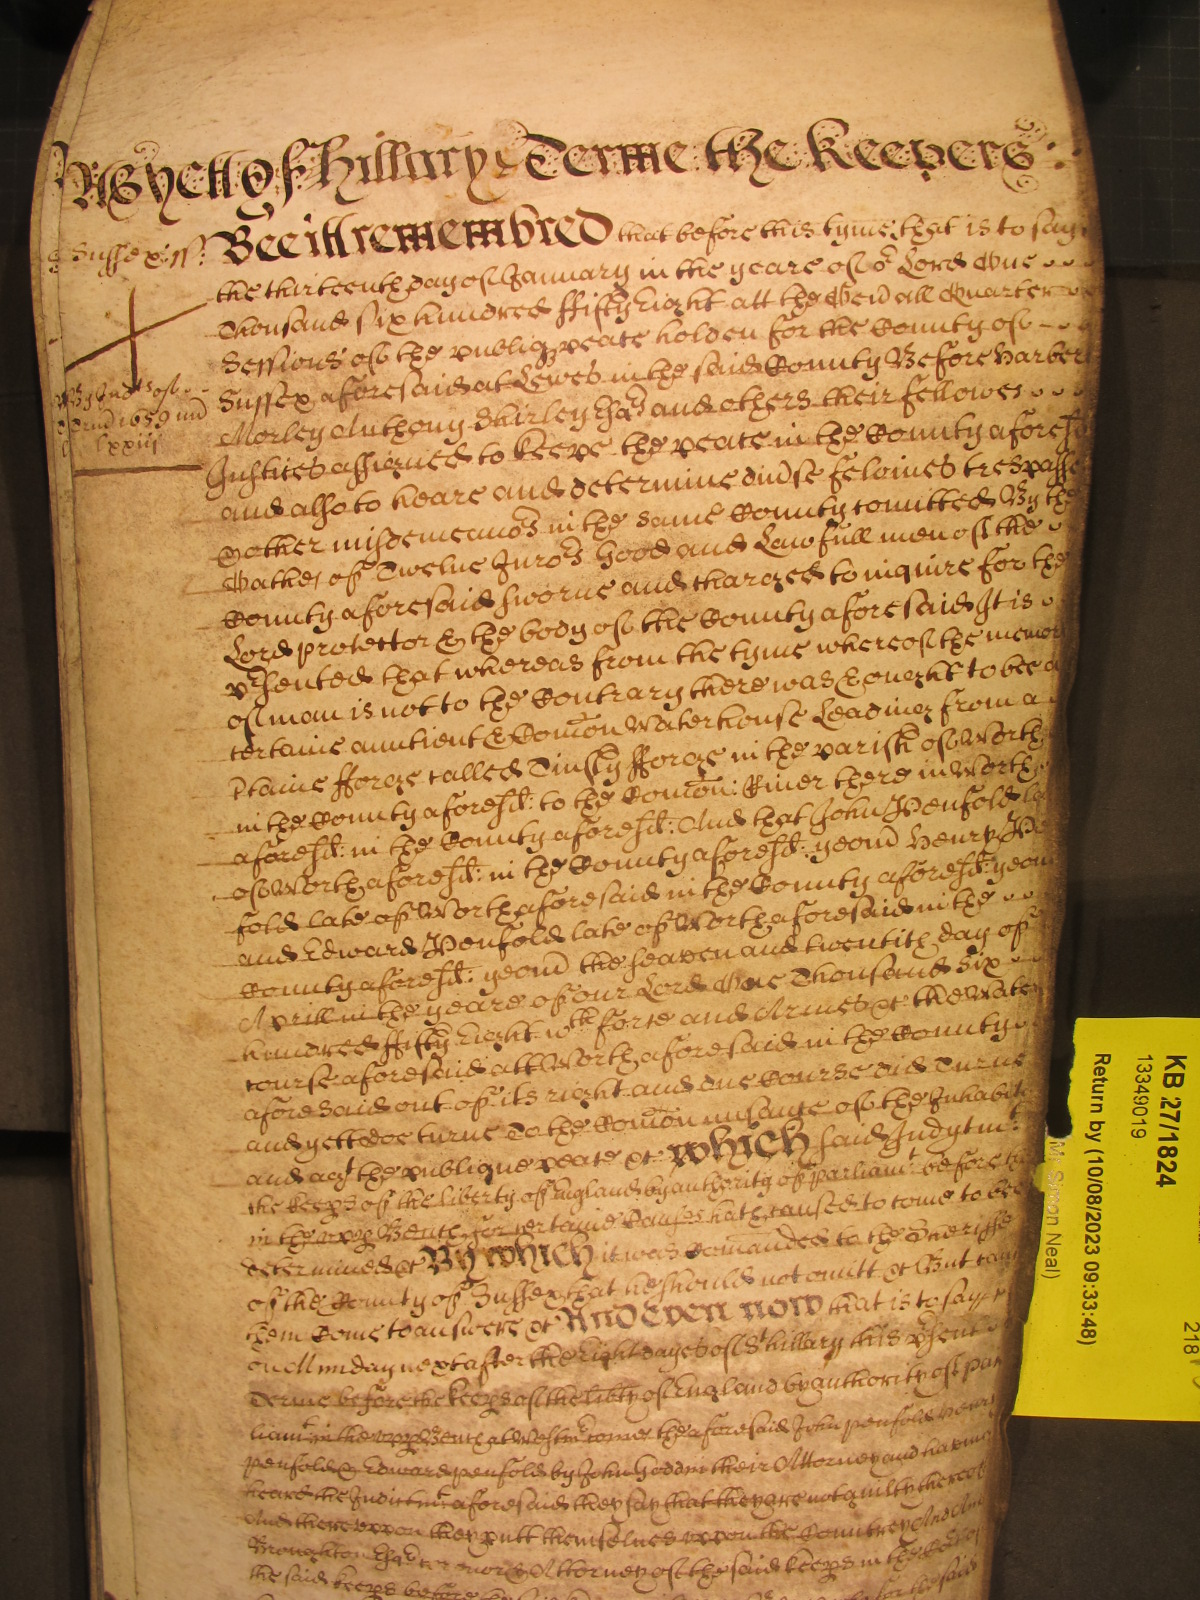 As yett of Hillary Terme the Keepers
Sussex ss: Bee itt remembred that before this tyme that is to say
the thirteenth day of January in the yeare of or Lord One
Thousand six hundred ffifty eight att the Genall Quarter
Sessions of the publiq peace holden for the County of
Sussex aforesaid at Lewes in the said County Before Harbert
Morley Anthony Shirley Esqrs and others their fellowes
Justices assigned to keepe the peace in the County aforesd
and also to heare and determine divse felonies trespasses
& other misdemeanors in the same County comitted By the
Oathes of Twelve Jurors Good and Lawfull men of the
County aforesaid sworne and charged to inquire for the
Lord protector & the body of the County aforesaid It is
psented that whereas from the tyme whereof the memory
of man is not to the Contrary there was & ought to bee a
certaine auntient & Comon Watercourse Leading from a
Ctaine fforge called Tinsly fforge in the parish of Worth
in the County aforesd: to the Comon River there in Worth
aforesd: in the County aforesd: And that John Penfold late
of Worth aforesd: in the County aforesd: yeom Henry Pen
fold late of Worth aforesaid in the County aforesd: yeom
and Edward Penfold late of Worth aforesaid in the
County aforesd: yeom the seaven and twentith day of
Aprill in the yeare of our Lord One Thousand Six
hundred ffifty eight wth force and Armes &c the Water
course aforesaid att Worth aforesaid in the County
aforesaid out of its right and due Course did Turne
and yett doe turne To the Comon nusance of the Inhabit
and agt the publique peace &c: which said Indytmt:
the keeps of the liberty of England by authority of parliamt before
in the upp Bench for certaine Causes hath caused to come to bee
determined &c By which it was Comanded to the Sheriffe
of the County of Sussex that he should not omitt &c But
them Come to answere &c And even now that is to say
on Munday next after the eight dayes of St hillary this psent
Terme before the keeps of the libty of England by authority of par
liamt in the upp Bench at Westmr come the aforesaid John penfold Henry
penfold & Edward penfold by John Godden their Attorney and having
heard the Indictmt aforesaid they say that they are not guilty thereof
And thereuppon they putt themselves uppon the Countrey And
Broughton Esqr Attorney of the said keeps in the
the said keeps before for the said
By Indts of
1659 Num
lxxiiii
KB 27/1824
13349019
Return by (10/08/2023 09:33:48)
Mr Simon Neal)
218